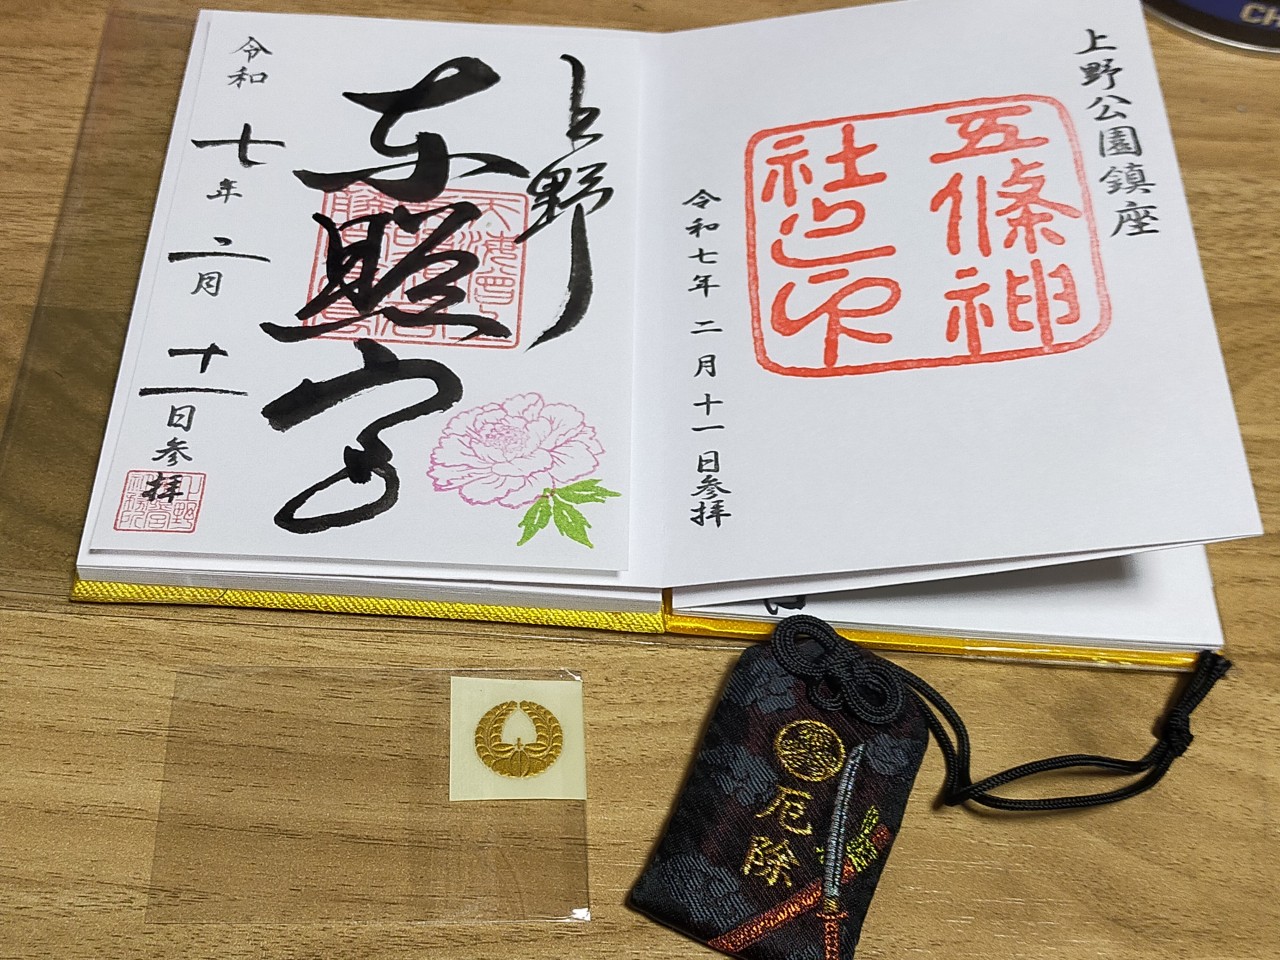 上野公園鎮座
五條神
社之印
令和七年二月十一日参拝
上野
東照宮
令和七年二月十一日参拝
厄除
CH